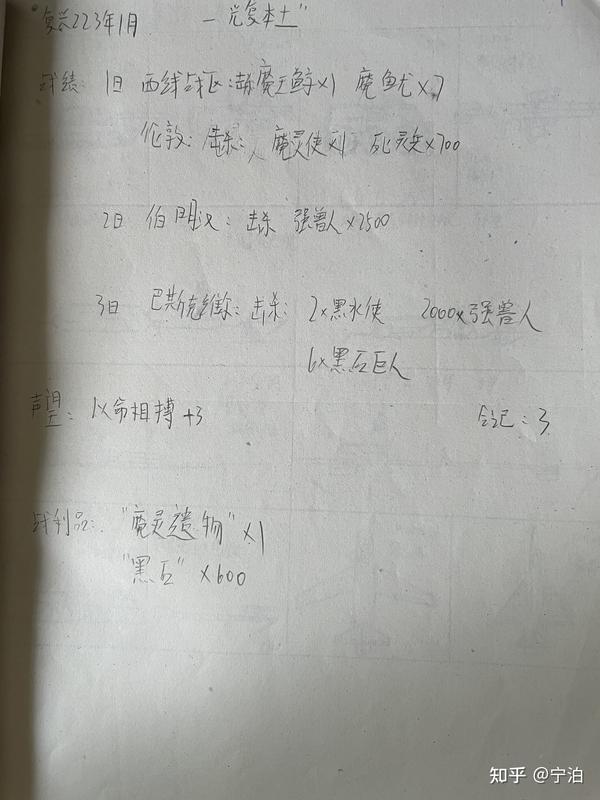 "复兴223年1月 —光复本土"
战绩: 1日 西线战区:击杀魔王鲸×1 魔鱿×7
伦敦: 击杀: 魔灵使×1 死灵兵×700
2日 伯明汉: 击杀 强兽人×2500
3日 巴斯克维尔: 击杀: 2×黑水使 2000×强兽人
6×黑石巨人
声望: 以命相搏+3 总记:3
战利品: "魔灵遗物"×1
"黑石"×600
知乎 @宁泊